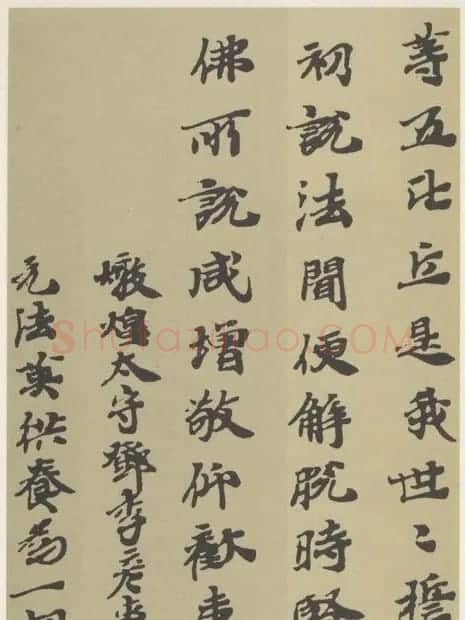 等五比丘是我世〻誓
初說法聞便解脫時
佛所說咸增敬仰歡
燉煌太守鄧季彥妻
元法英供養為一切